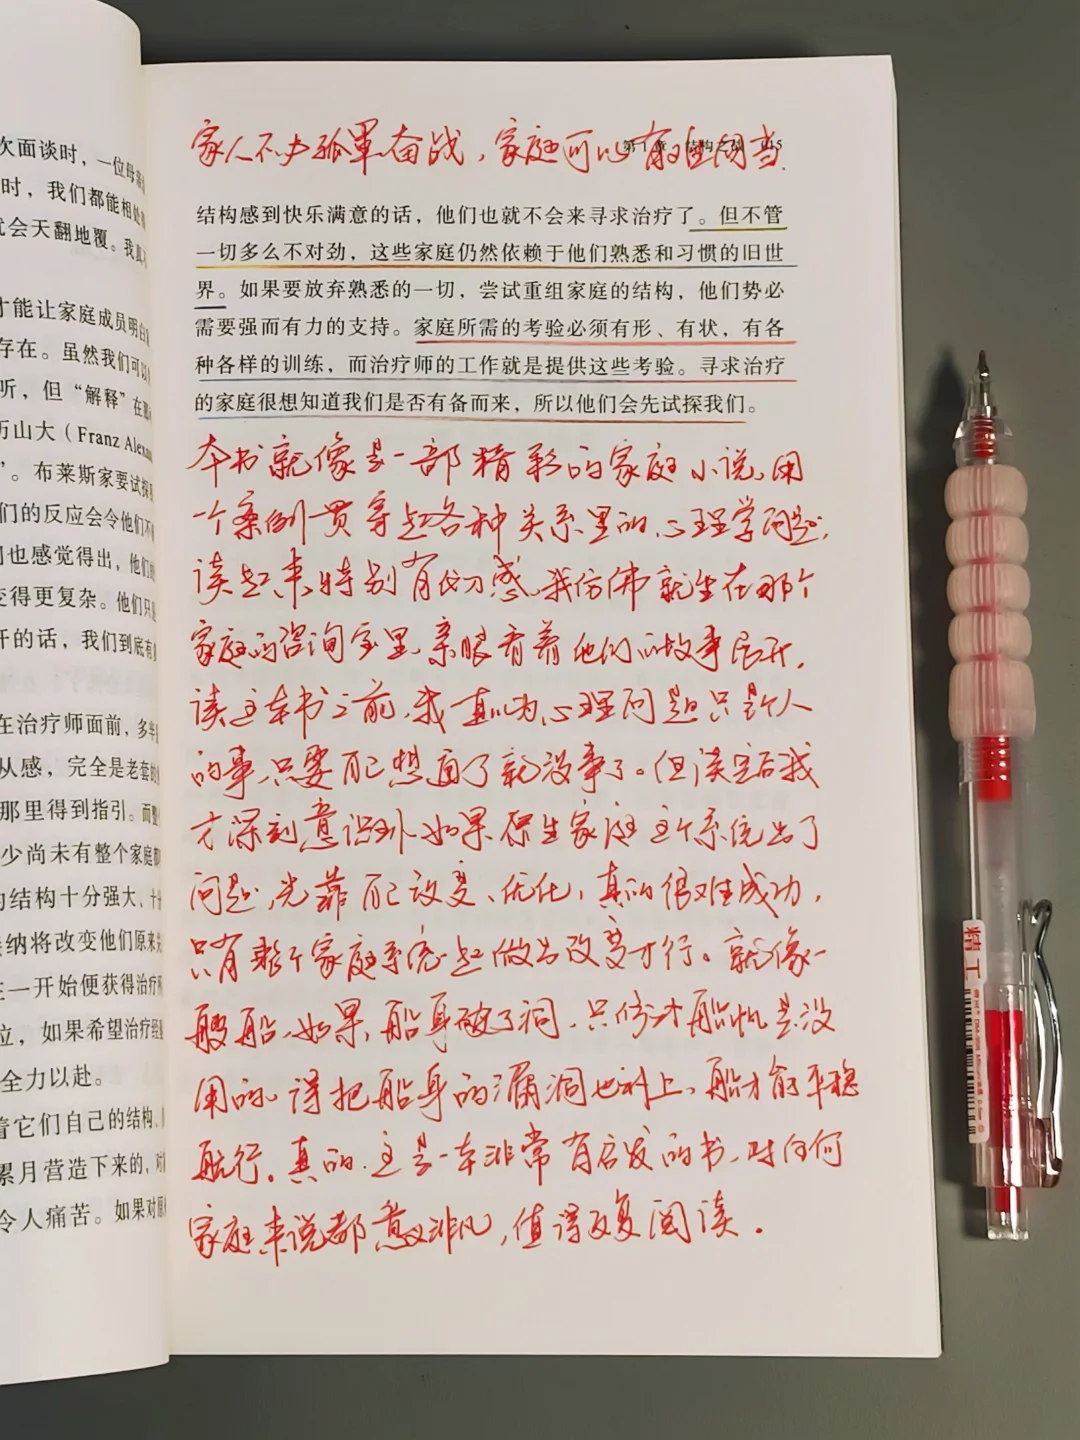 次面谈时，一位母亲
时，我们都能相处
就会天翻地覆。我真
才能让家庭成员明白
存在。虽然我们可以
听，但“解释”在那
历山大（Franz Alexan
”。布莱斯家要试探
们的反应会令他们不
们也感觉得出，他们
变得更复杂。他们只
开的话，我们到底有
在治疗师面前，多半
从感，完全是老套的
那里得到指引。而整
少尚未有整个家庭
的结构十分强大、十
接纳将改变他们原来
在一开始便获得治疗
位，如果希望治疗
全力以赴。
着它们自己的结构、
累月营造下来的，对
令人痛苦。如果对
家人不必孤军奋战，家庭可以有
第1章 结构之 015
结构感到快乐满意的话，他们也就不会来寻求治疗了。但不管
一切多么不对劲，这些家庭仍然依赖于他们熟悉和习惯的旧世
界。如果要放弃熟悉的一切，尝试重组家庭的结构，他们势必
需要强而有力的支持。家庭所需的考验必须有形、有状，有各
种各样的训练，而治疗师的工作就是提供这些考验。寻求治疗
的家庭很想知道我们是否有备而来，所以他们会先试探我们。
本书就像是一部精彩的家庭小说，用
一个案例贯穿起各种关系里的心理学问题，
读起来特别有代入感，我仿佛就坐在那个
家庭的咨询室里，亲眼看着他们的故事展开。
读这本书之前，我真以为心理问题只是个人
的事，只要自己想通了就没事了。但读完后我
才深刻意识到，如果原生家庭这个系统出了
问题，光靠自己改变、优化，真的很难成功，
只有整个家庭系统一起做出改变才行。就像一
艘船，如果船身破了洞，只修补船帆是没
用的，得把船身的漏洞也补上，船才能平稳
航行。真的，这是一本非常有启发的书，对任何
家庭来说都意义非凡，值得反复阅读。
精工